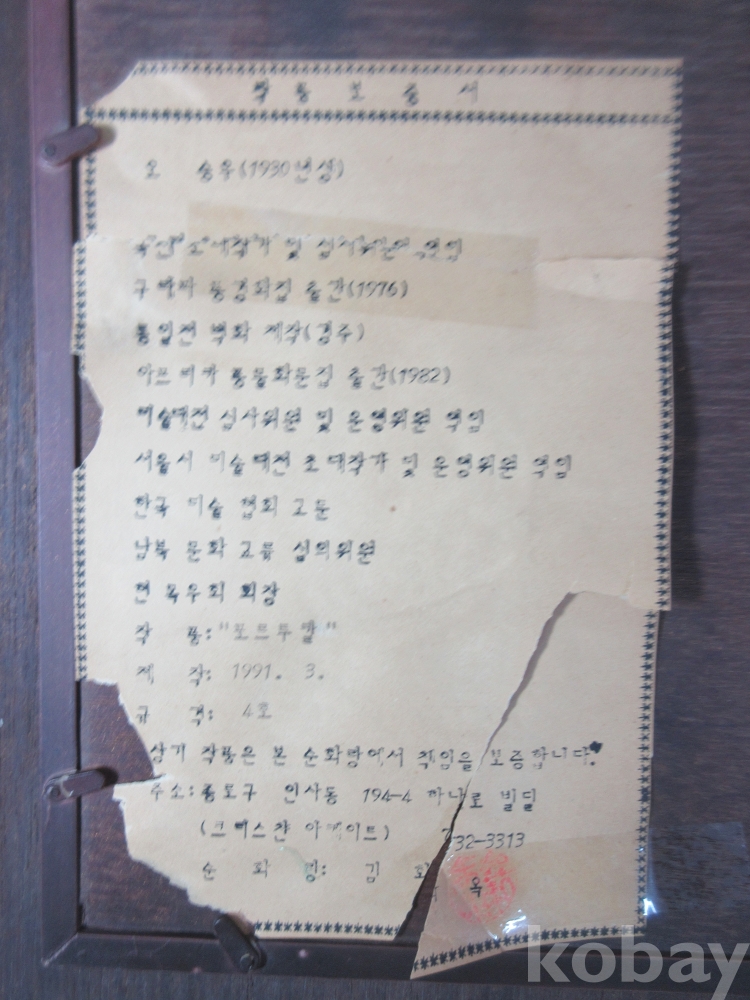 작 품 보 증 서
오 승우(1930년생)
국전 초대작가 및 심사위원 역임
구라파 풍경화집 출간(1976)
통일전 벽화 제작(경주)
아프리카 풍물화문집 출간(1982)
미술대전 심사위원 및 운영위원 역임
서울시 미술대전 초대작가 및 운영위원 역임
한국 미술 협회 고문
남북 문화 교류 심의위원
현 목우회 회장
작 품: "포르투갈"
제 작: 1991. 3.
규 격: 4호
상기 작품은 본 순화랑에서 책임을 보증합니다.
주소:종로구 인사동 194-4 하나로 빌딩
(크리스챤 아카이트) 732-3313
순 화 랑: 김 옥
kobay